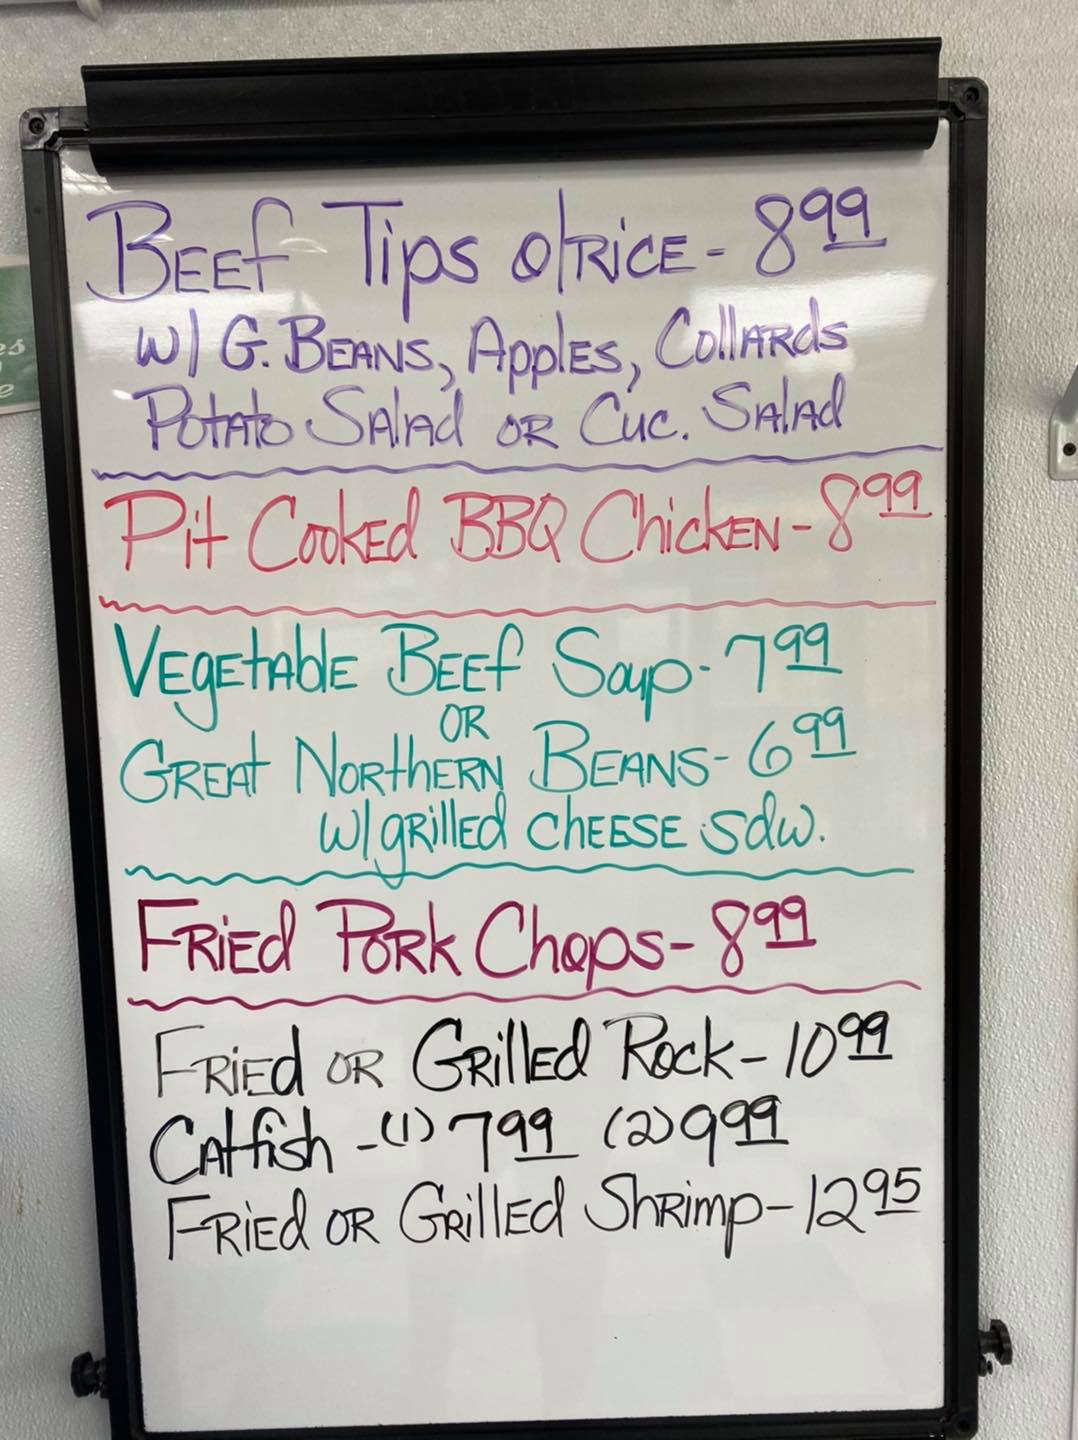 Beef Tips o/Rice - 8.99
w/ G. Beans, Apples, Collards
Potato Salad or Cuc. Salad
Pit Cooked BBQ Chicken - 8.99
Vegetable Beef Soup - 7.99
or
Great Northern Beans - 6.99
w/ grilled cheese sdw.
Fried Pork Chops - 8.99
Fried or Grilled Rock - 10.99
Catfish - (1) 7.99 (2) 9.99
Fried or Grilled Shrimp - 12.95